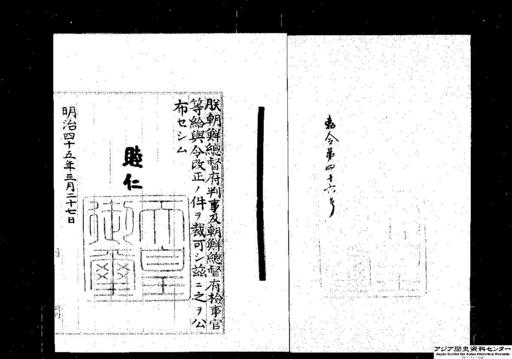 勅令第四十六号
朕朝鮮總督府判事及朝鮮總督府檢事官
等給與令改正ノ件ヲ裁可シ茲ニ之ヲ公
布セシム
睦仁
天皇
御璽
明治四十五年三月二十七日
アジア歴史資料センター
Japan Center for Asian Historical Records